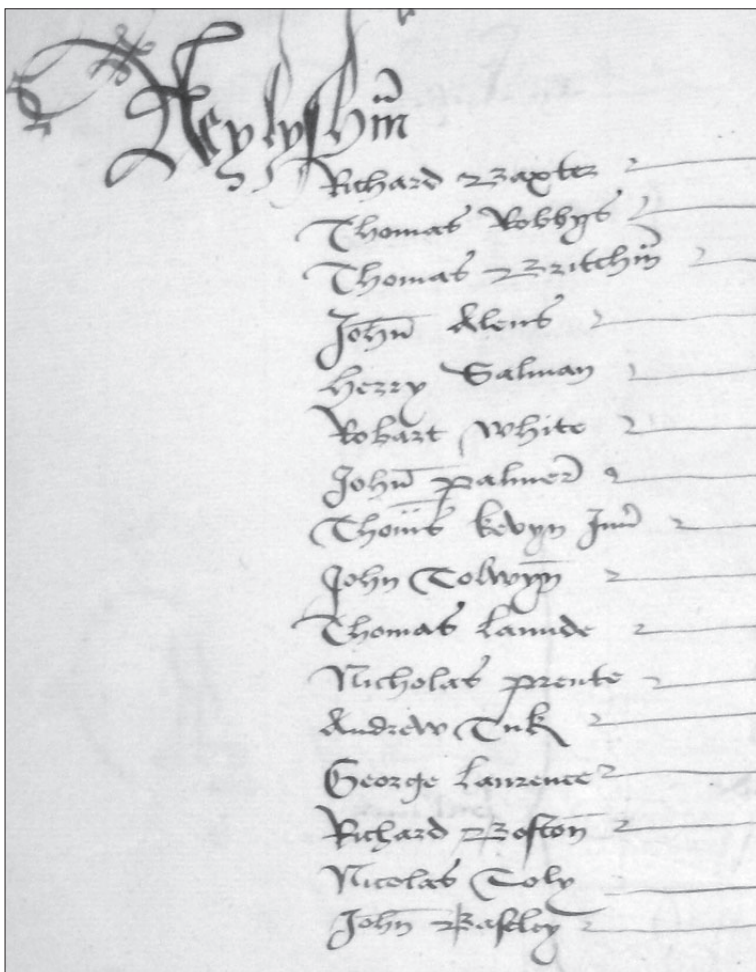 Richard Baxter
Thomas Robbys
Thomas Britchin
John Alens
Herry Salman
Robart White
John palmer
Thoms kevyn Jun
John Tolwyn
Thomas Launde
Nicholas prente
Andrew Tuk
George Laurence
Richard Boston
Nicolas Toly
John Pastley